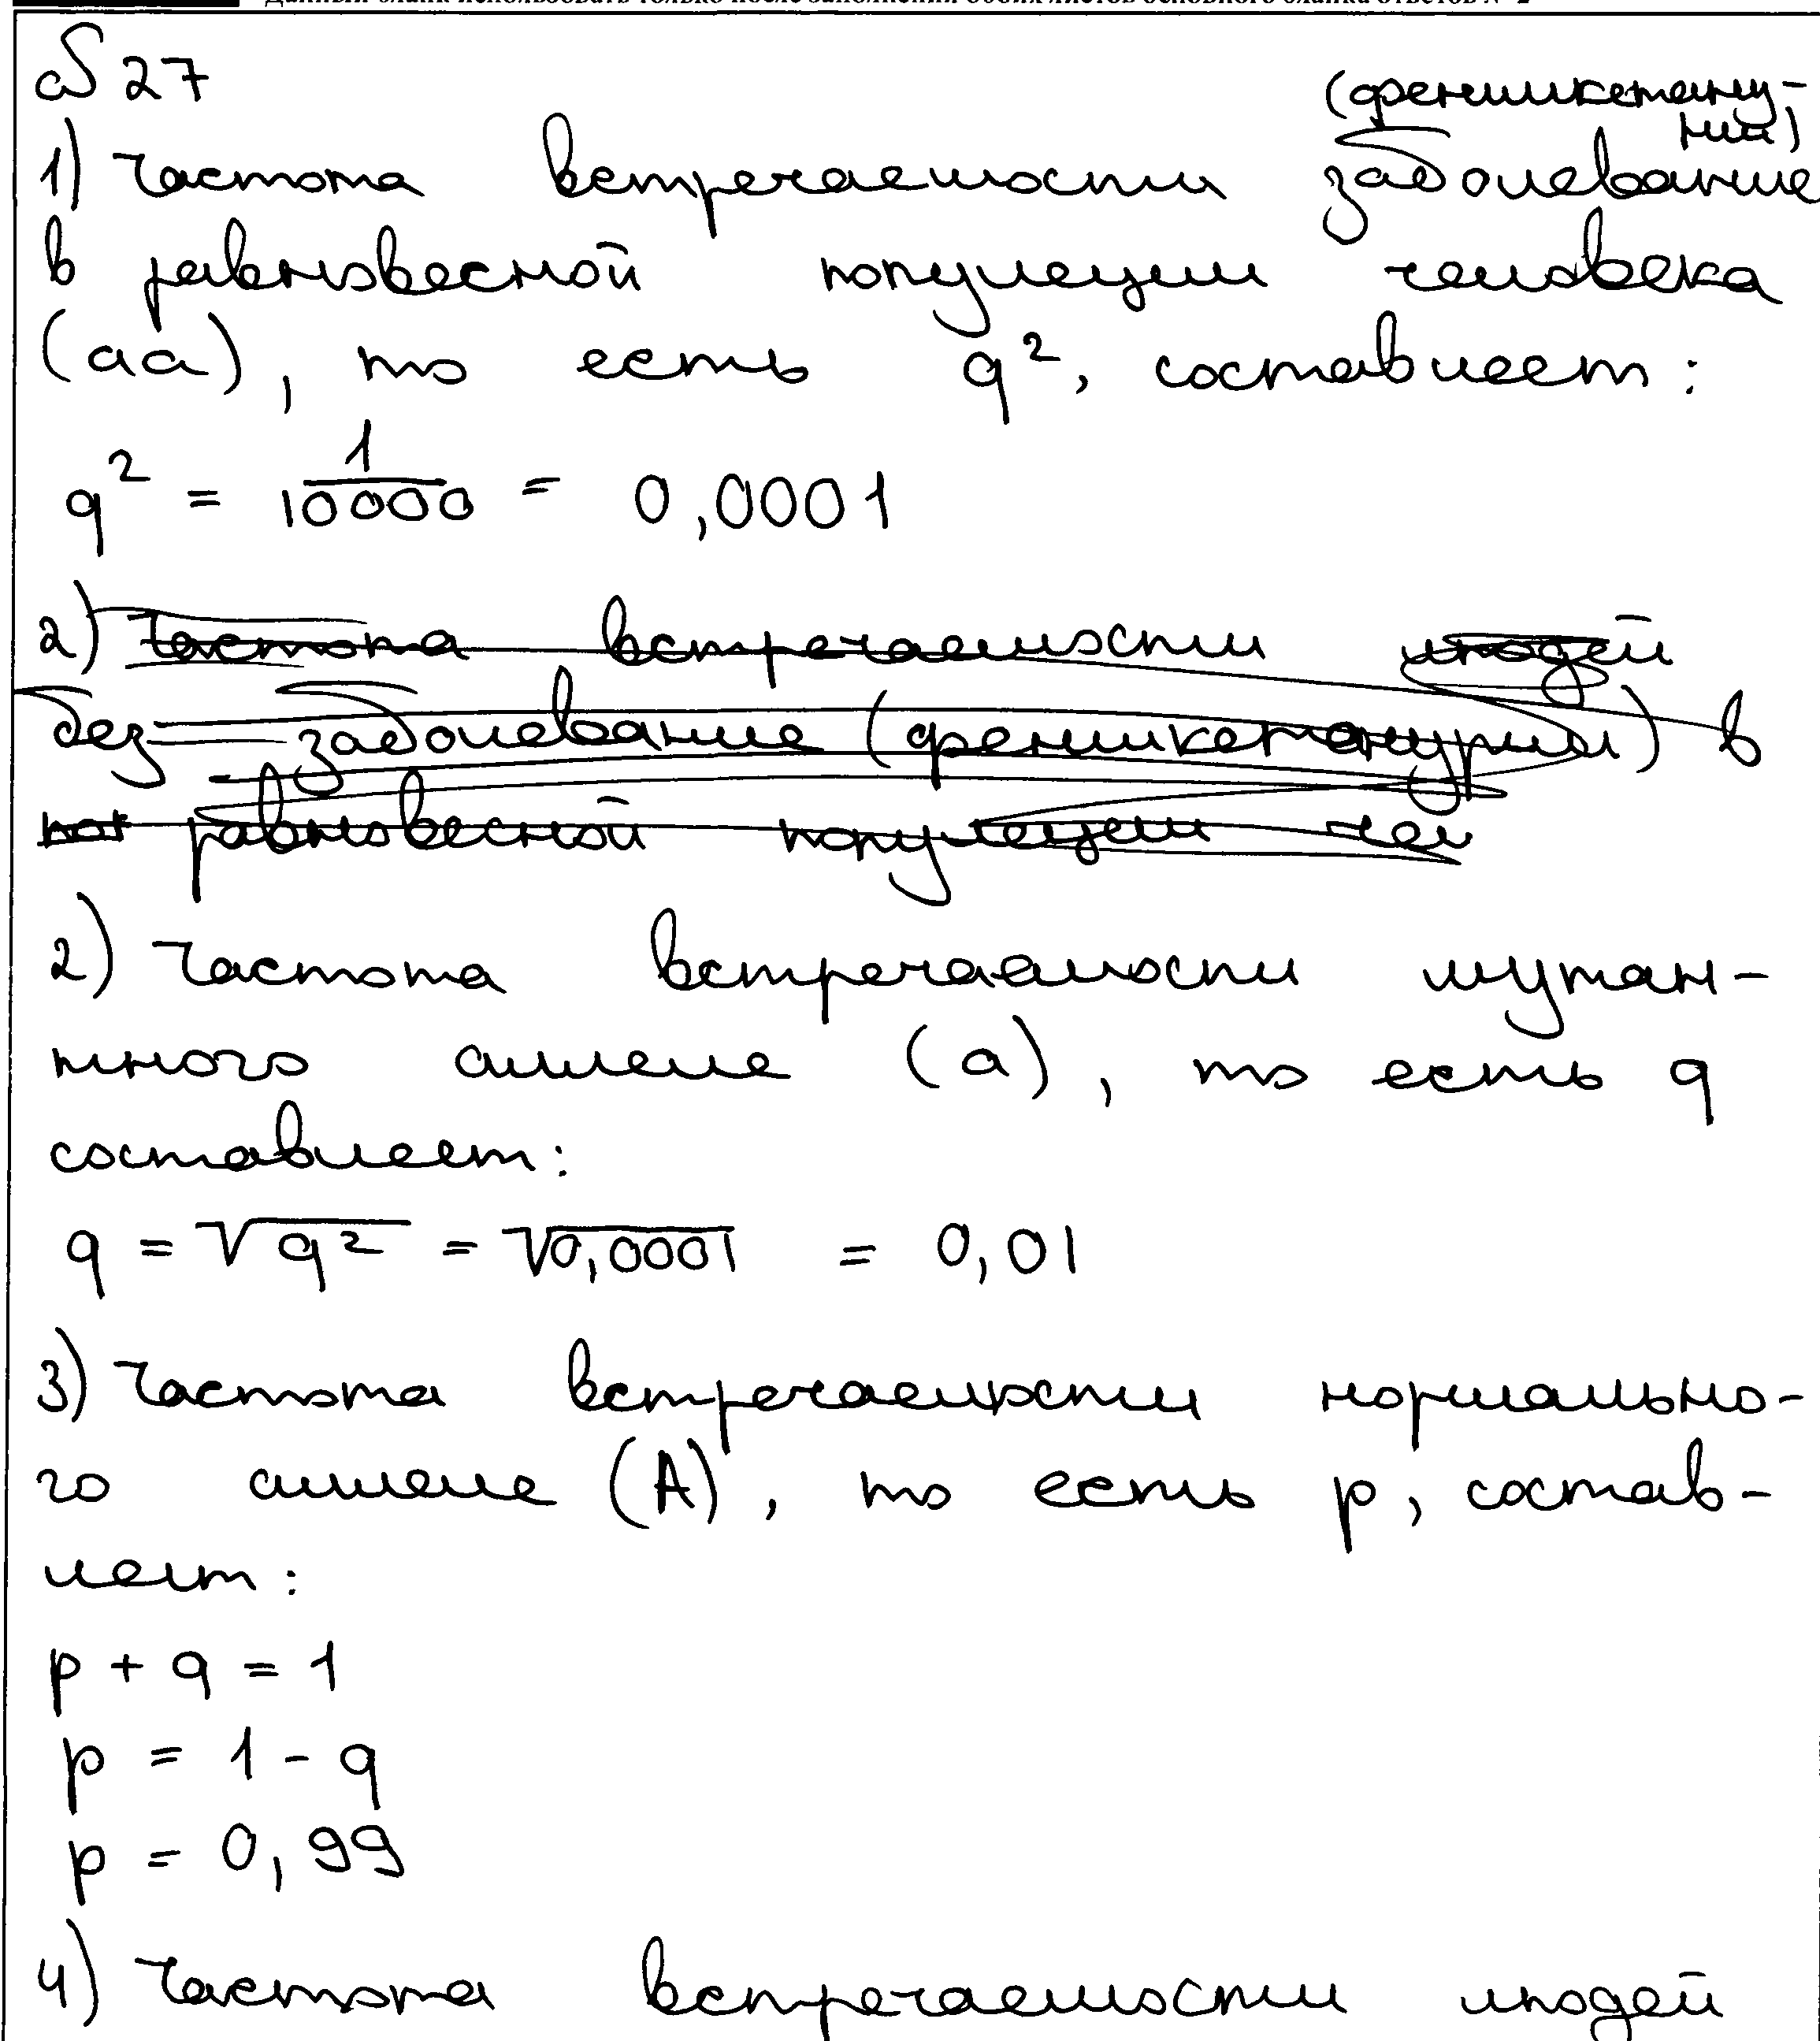 Данный бланк использовать только после заполнения обоих листов основного бланка ответов № 2
№ 27
(фенилкетону-
рия)
1) Частота встречаемости заболевание
в равновесной популяции человека
(aa), то есть q², составляет:
q² = 1/10000 = 0,0001
2) Частота встречаемости людей
без заболевание (фенилкетонурии) в
поп равновесной популяции чел
2) Частота встречаемости мутан-
тного аллеля (a), то есть q
составляет:
q = √q² = √0,0001 = 0,01
3) Частота встречаемости нормально-
го аллеля (A), то есть p, состав-
ляет:
p + q = 1
p = 1 - q
p = 0,99
4) Частота встречаемости людей